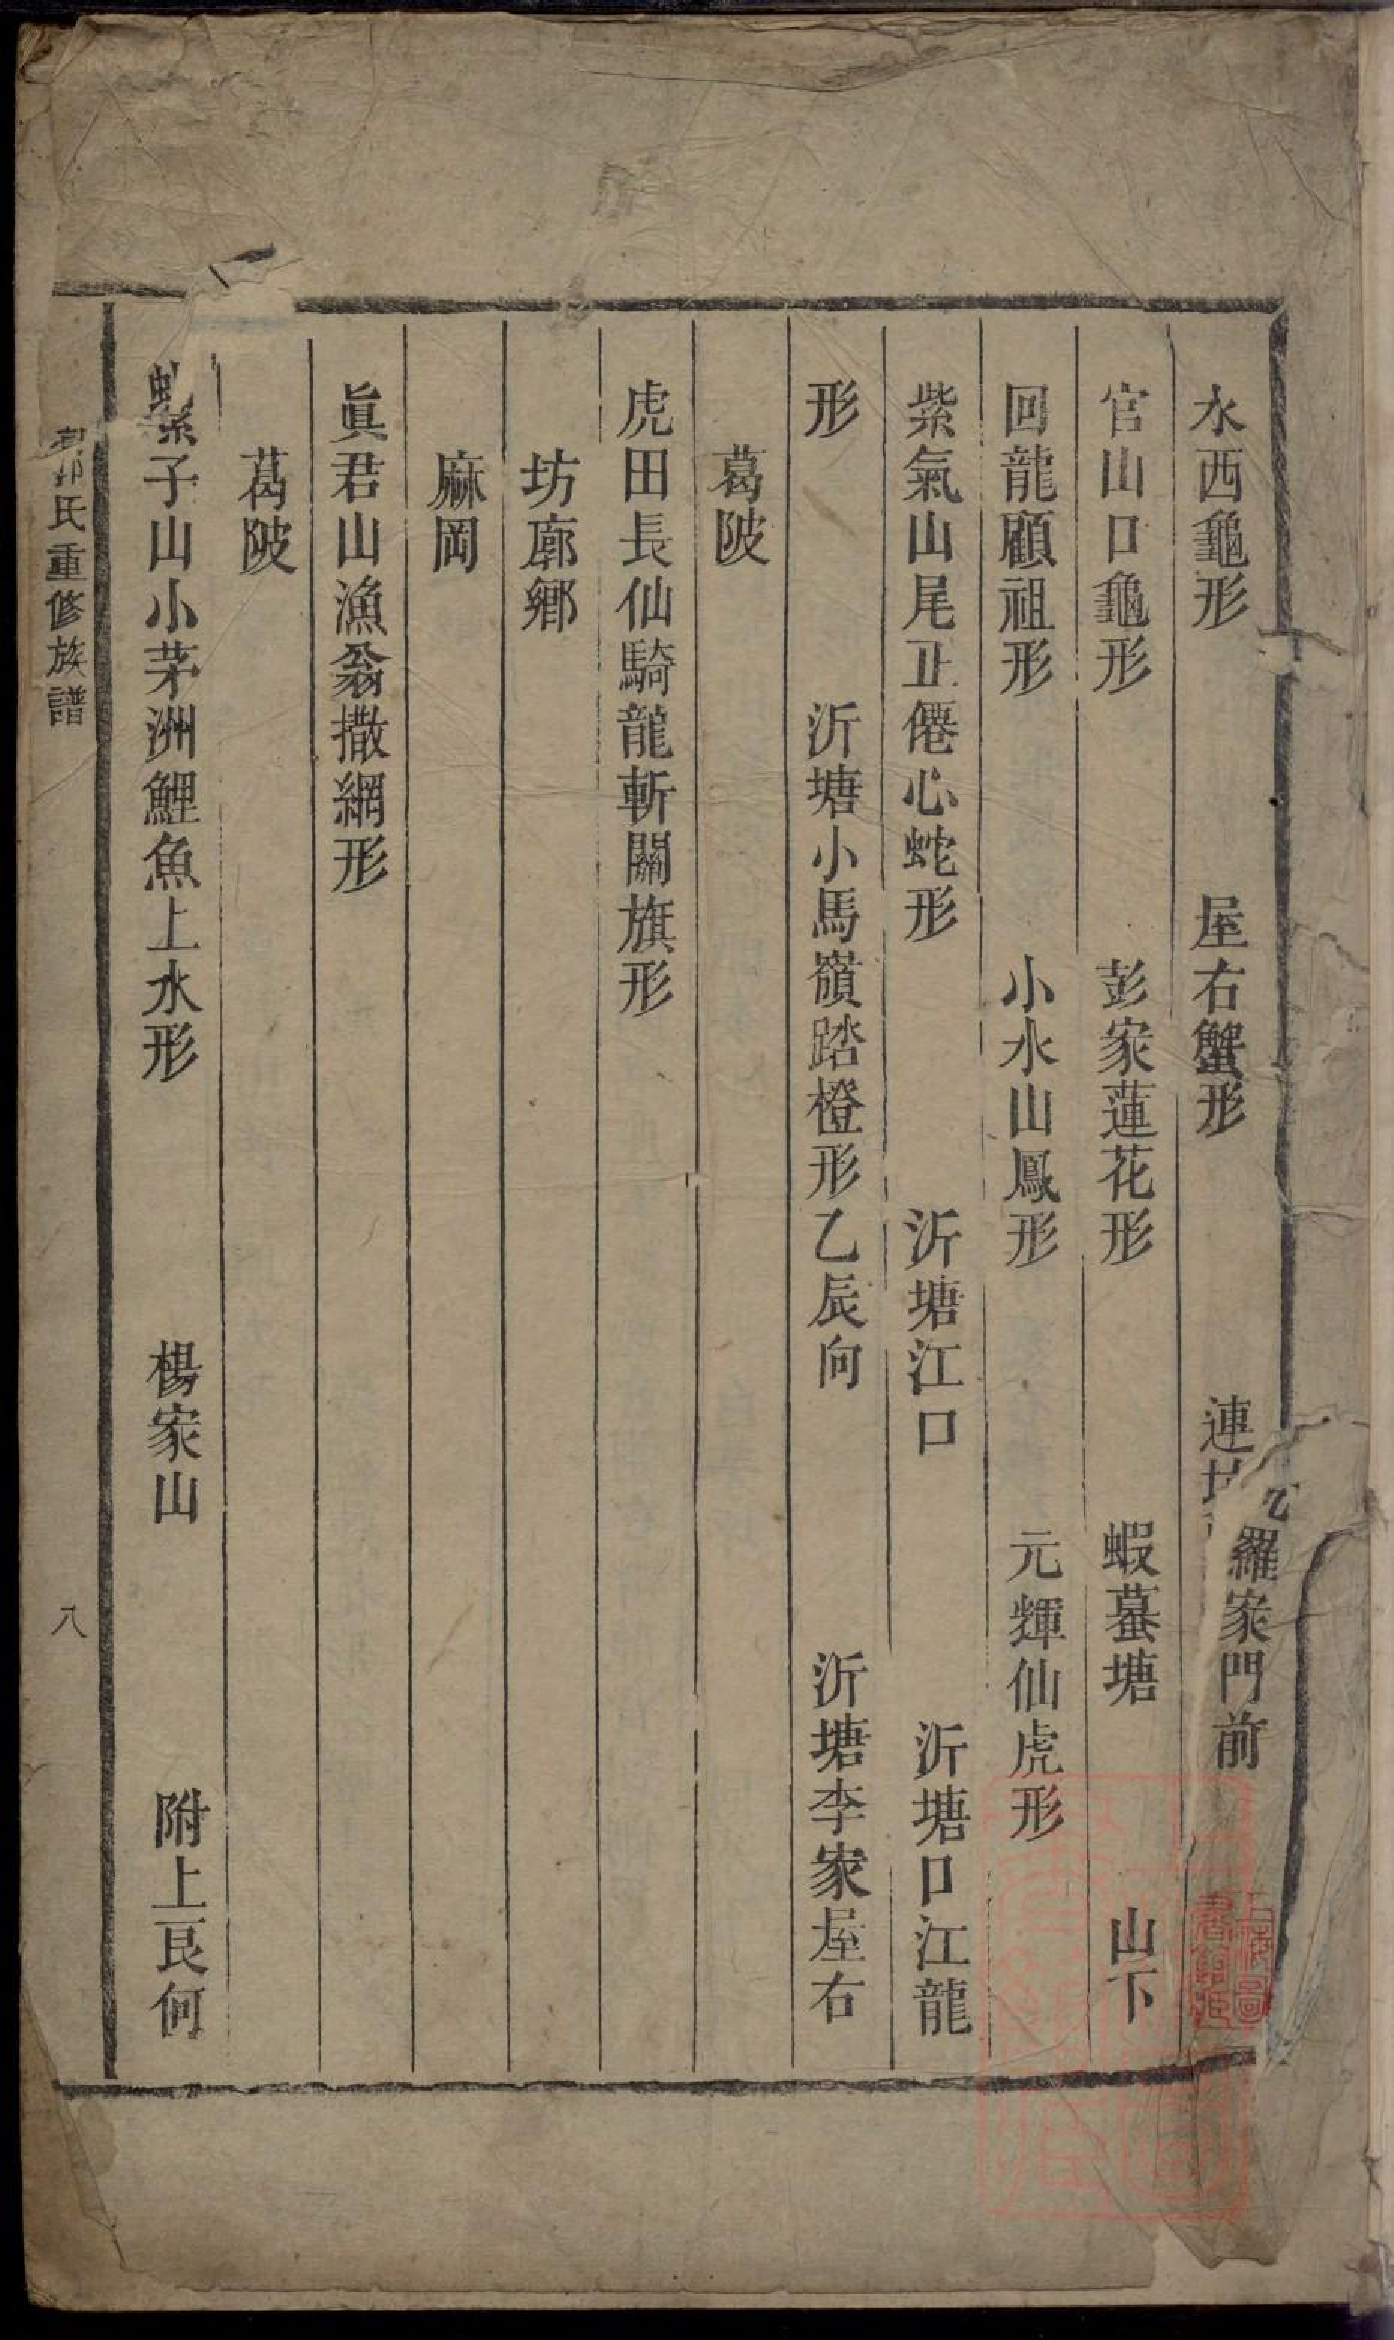 水西龜形　屋右蟹形　連　羅家門前
官山口龜形　彭家蓮花形　蝦蟇塘　山下
回龍顧祖形　小水山鳳形　元輝仙虎形
紫氣山尾正僊心蛇形　沂塘江口　沂塘口江龍
形　沂塘小馬嶺踏橙形乙辰向　沂塘李家屋右
葛陂
虎田長仙騎龍斬關旗形
坊廓鄉
麻岡
眞君山漁翁撒網形
葛陂
螺子山小茅洲鯉魚上水形　楊家山　附上艮何
氏重修族譜　八
上海圖書館藏